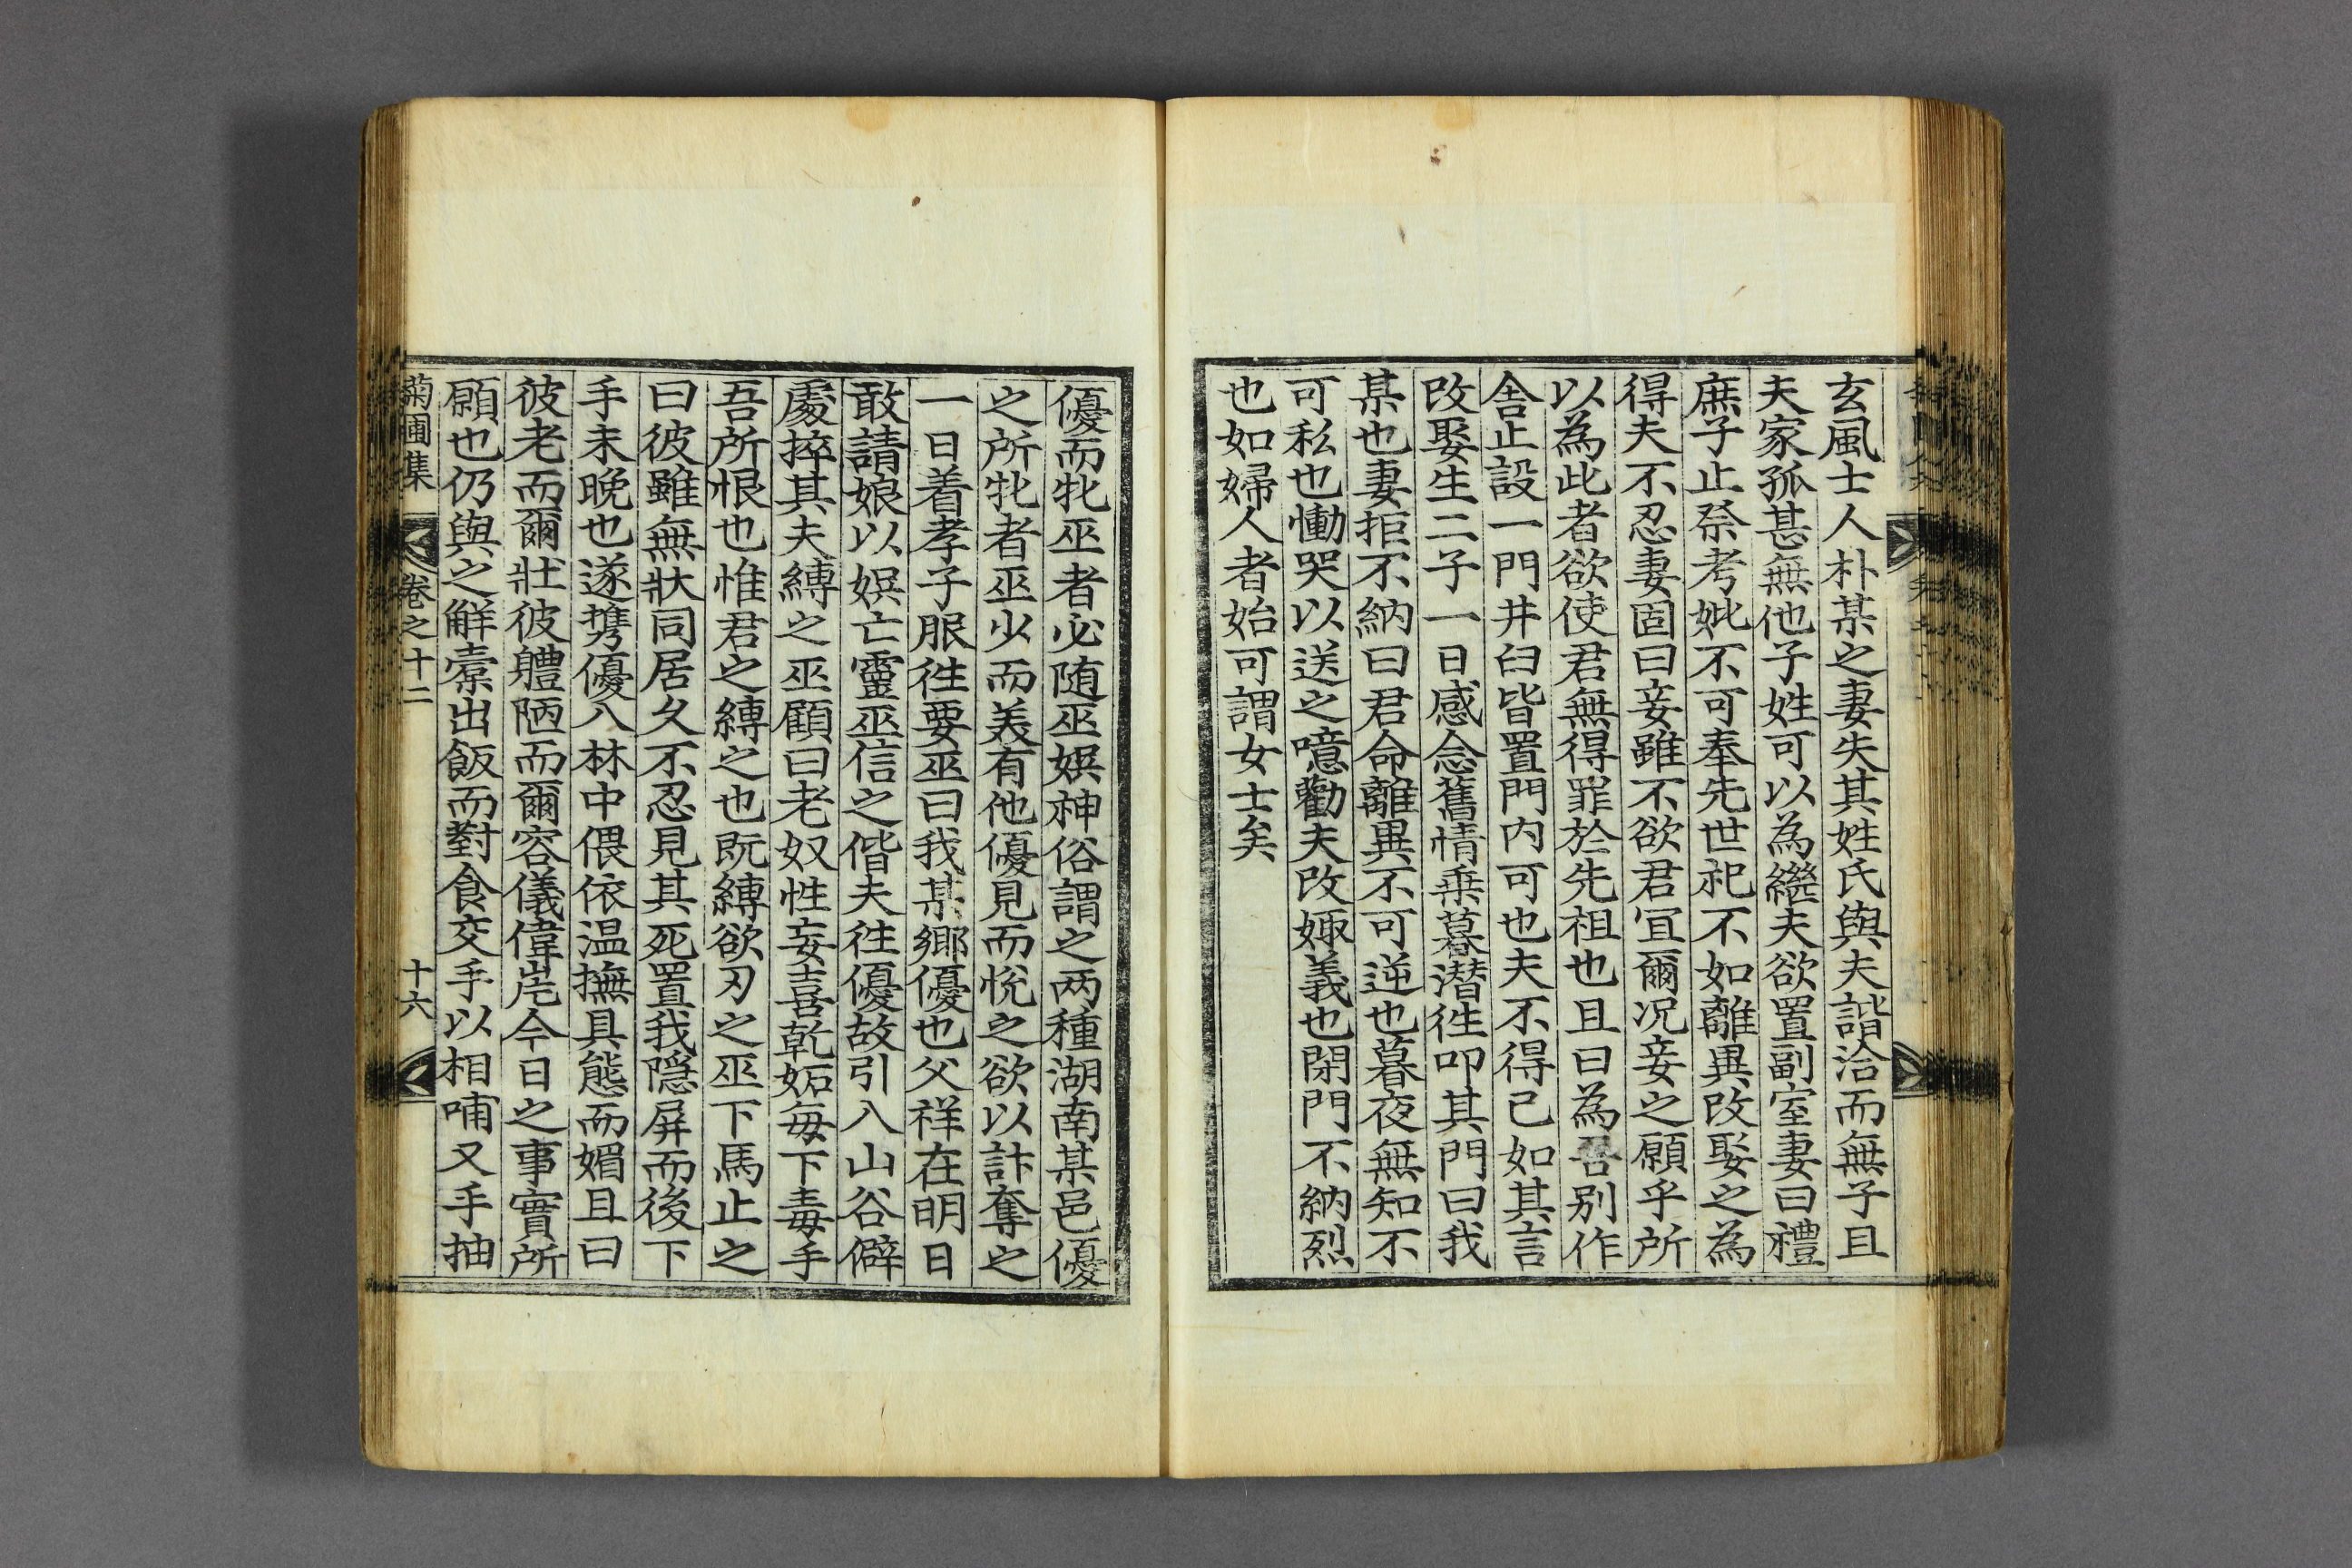 玄風士人朴某之妻失其姓氏與夫諧洽而無子且
夫家孤甚無他子姓可以為繼夫欲置副室妻曰禮
庶子止祭考妣不可奉先世祀不如離異改娶之為
得夫不忍妻固曰妾雖不欲君宜爾况妾之願乎所
以為此者欲使君無得罪於先祖也且曰為吾别作
舎止設一門井臼皆置門内可也夫不得已如其言
改娶生二子一日感念舊情乗暮潜徃叩其門曰我
某也妻拒不納曰君命離異不可逆也暮夜無知不
可私也慟哭以送之噫勸夫改娵義也閉門不納烈
也如婦人者始可謂女士矣
優而牝巫者必随巫娯神俗謂之两種湖南某邑優
之所牝者巫少而美有他優見而悅之欲以計奪之
一日着孝子服徃要巫曰我某鄉優也父祥在明日
敢請娘以娯亡靈巫信之偕夫徃優故引入山谷僻
處捽其夫縛之巫顧曰老奴性妄喜乾妬每下毒手
吾所恨也惟君之縛之也既縛欲刃之巫下馬止之
曰彼雖無狀同居久不忍見其死置我隱屏而後下
手未晩也遂携優入林中偎依温撫具態而媚且曰
彼老而爾壯彼軆陋而爾容儀偉岸今日之事實所
願也仍與之觧橐出飯而對食交手以相哺又手抽
菊圃集 卷之十二 十六